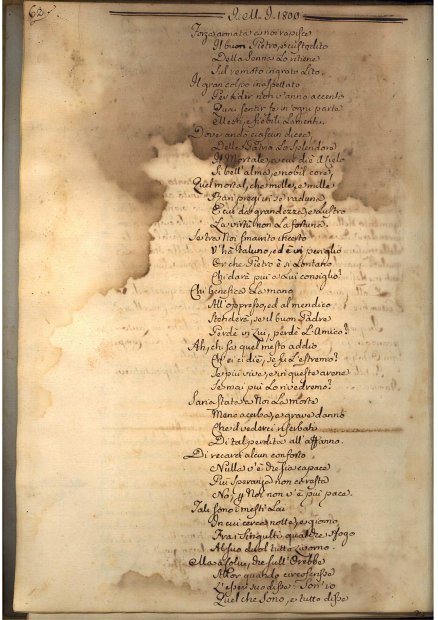 62.
I. M. I. 1800
Forza armata a noi rapisce
Il buon Pietro, e custodito
Della Senna lo ritiene
Sul remoto ingrato Lito.
Il gran colpo inaspettato
non v'anno accenti
Quai sentir fè in ogni parte
Mesti, e flebili Lamenti.
Dove andò ciascun dicea,
Della Patria Lo Splendore
Il Mortale, a cui diè il Cielo
Sì bell'alma, e nobil core,
Quel mortal, che mille, e mille
Rari pregi in se raduna
E cui da grandezze, e lustro
La virtù non La fortuna.
Fra Noi smarrito
V'hà taluno, ed è in periglio
Or che Pietro è sì Lontano
Chi darà più a Lui consiglio?
Chi benefica La mano
All'oppresso, ed al mendico
Stenderà, se il buon Padre
Perde in Lui, perde L'Amico?
Ah, chi sa quel mesto addio
Ch'ei ci diè, se fu L'estremo?
Se più vive, e in queste arene
Se mai più Lo rivedremo?
Saria stata a Noi La morte
Meno acerba, e grave danno
Che il vederci riserbati
Di tal perdita all'affanno.
Di recarci alcun conforto
Nulla v'è che sia capace
Più Speranza non ci resta
Nò, p Noi non v'è più pace.
Tali sono i mesti Lai
In cui cerca notte, e giorno
Fra i Singulti qualche sfogo
Al suo duol tutto
sull'Orebbe
Allor quando
disse Son'io
Quel che Sono, e tutto disse